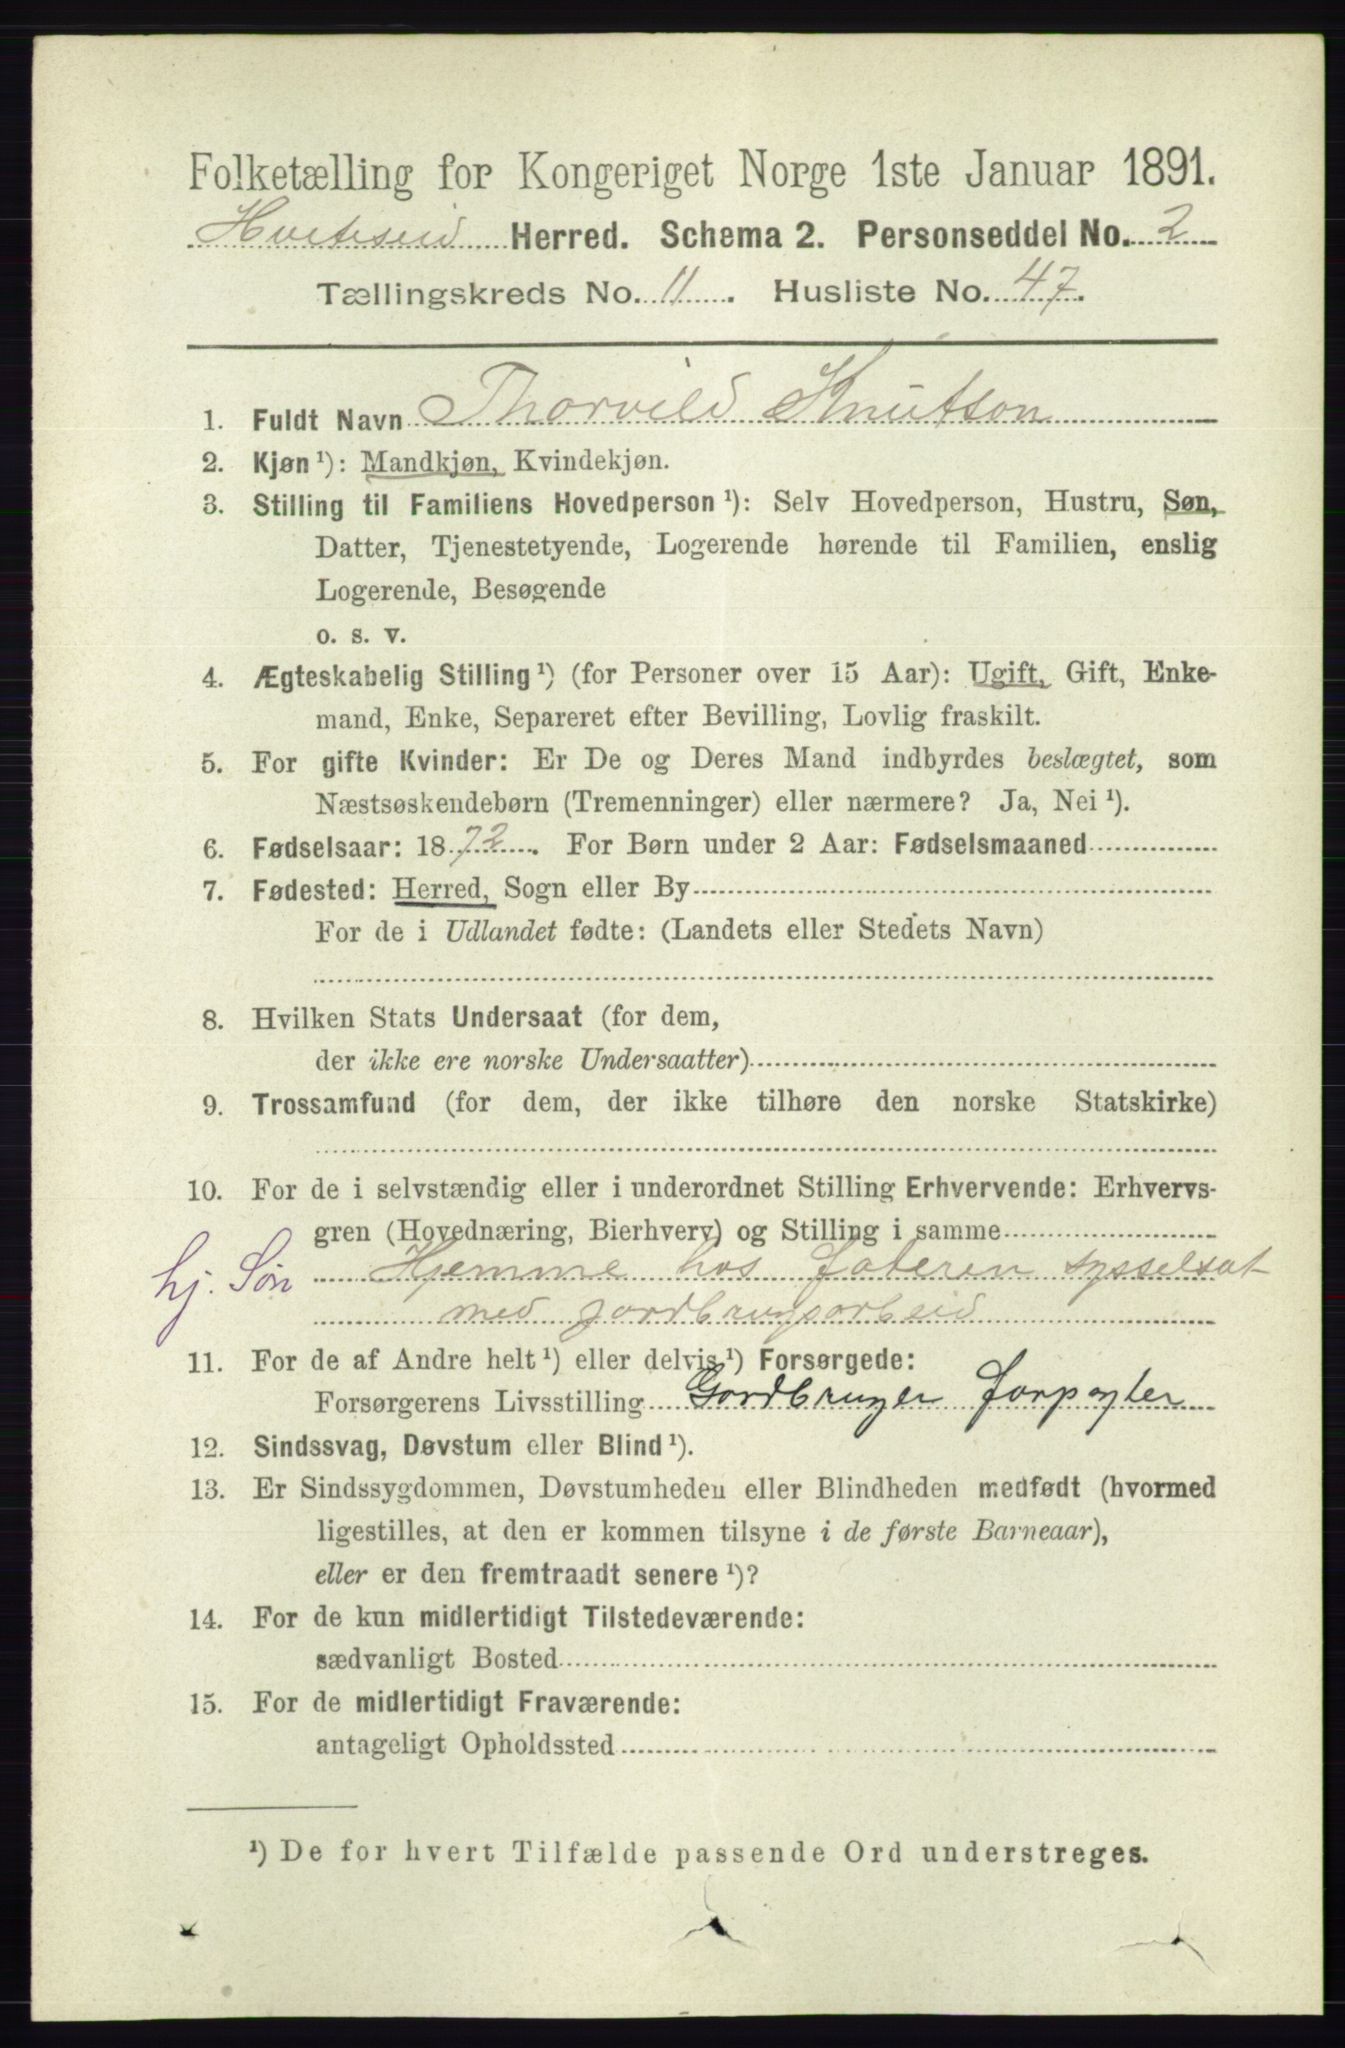 Folketælling for Kongeriget Norge 1ste Januar 1891.
Hviteseid Herred. Schema 2. Personseddel No. 2
Tællingskreds No. 11. Husliste No. 47.
1. Fuldt Navn Thorvild Knutson
2. Kjøn ¹): Mandkjøn, Kvindekjøn.
3. Stilling til Familiens Hovedperson ¹): Selv Hovedperson, Hustru, Søn,
Datter, Tjenestetyende, Logerende hørende til Familien, enslig
Logerende, Besøgende
o. s. v.
4. Ægteskabelig Stilling ¹) (for Personer over 15 Aar): Ugift, Gift, Enke-
mand, Enke, Separeret efter Bevilling, Lovlig fraskilt.
5. For gifte Kvinder: Er De og Deres Mand indbyrdes beslægtet, som
Næstsøskendebørn (Tremenninger) eller nærmere? Ja, Nei ¹).
6. Fødselsaar: 1872. For Børn under 2 Aar: Fødselsmaaned
7. Fødested: Herred, Sogn eller By
For de i Udlandet fødte: (Landets eller Stedets Navn)
8. Hvilken Stats Undersaat (for dem,
der ikke ere norske Undersaatter)
9. Trossamfund (for dem, der ikke tilhøre den norske Statskirke)
10. For de i selvstændig eller i underordnet Stilling Erhvervende: Erhvervs-
gren (Hovednæring, Bierhverv) og Stilling i samme
hj. Søn Hjemme hos faderen sysselsat
med jordbrugsarbeid
11. For de af Andre helt ¹) eller delvis ¹) Forsørgede:
Forsørgerens Livsstilling Gordbruger forpagter
12. Sindssvag, Døvstum eller Blind ¹).
13. Er Sindssygdommen, Døvstumheden eller Blindheden medfødt (hvormed
ligestilles, at den er kommen tilsyne i de første Barneaar),
eller er den fremtraadt senere ¹)?
14. For de kun midlertidigt Tilstedeværende:
sædvanligt Bosted
15. For de midlertidigt Fraværende:
antageligt Opholdssted
¹) De for hvert Tilfælde passende Ord understreges.